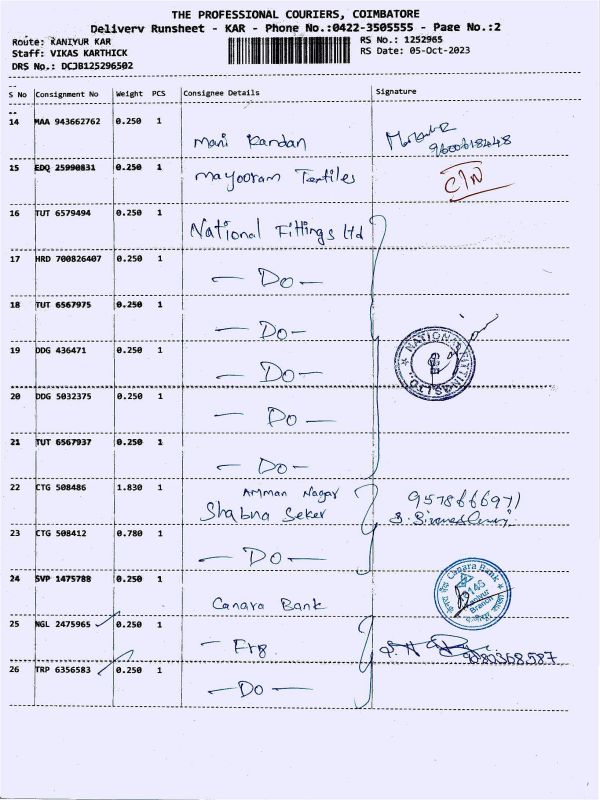 THE PROFESSIONAL COURIERS, COIMBATORE
Delivery Runsheet - KAR - Phone No.:0422-3505555 - Page No.:2
Route: KANIYUR KAR
RS No.: 1252965
Staff: VIKAS KARTHICK
RS Date: 05-Oct-2023
DRS No.: DCJB125296502
S No Consignment No Weight PCS Consignee Details Signature
14 MAA 943662762 0.250 1 Mani Kandan
9600618448
15 EDQ 25990831 0.250 1 Mayooram Textiles C/N
16 TUT 6579494 0.250 1 National Fittings Ltd
17 HRD 700826407 0.250 1 — Do —
18 TUT 6567975 0.250 1 — Do —
19 DDG 436471 0.250 1 — Do —
NATIONAL FITTINGS LTD.
20 DDG 5032375 0.250 1 — Do —
21 TUT 6567937 0.250 1 — Do —
22 CTG 508486 1.830 1 Amman Nagar
Shabna Seker
23 CTG 508412 0.780 1 — Do —
24 SVP 1475788 0.250 1 Canara Bank
Canara Bank
Branch
25 NGL 2475965 0.250 1
26 TRP 6356583 0.250 1 — Do —